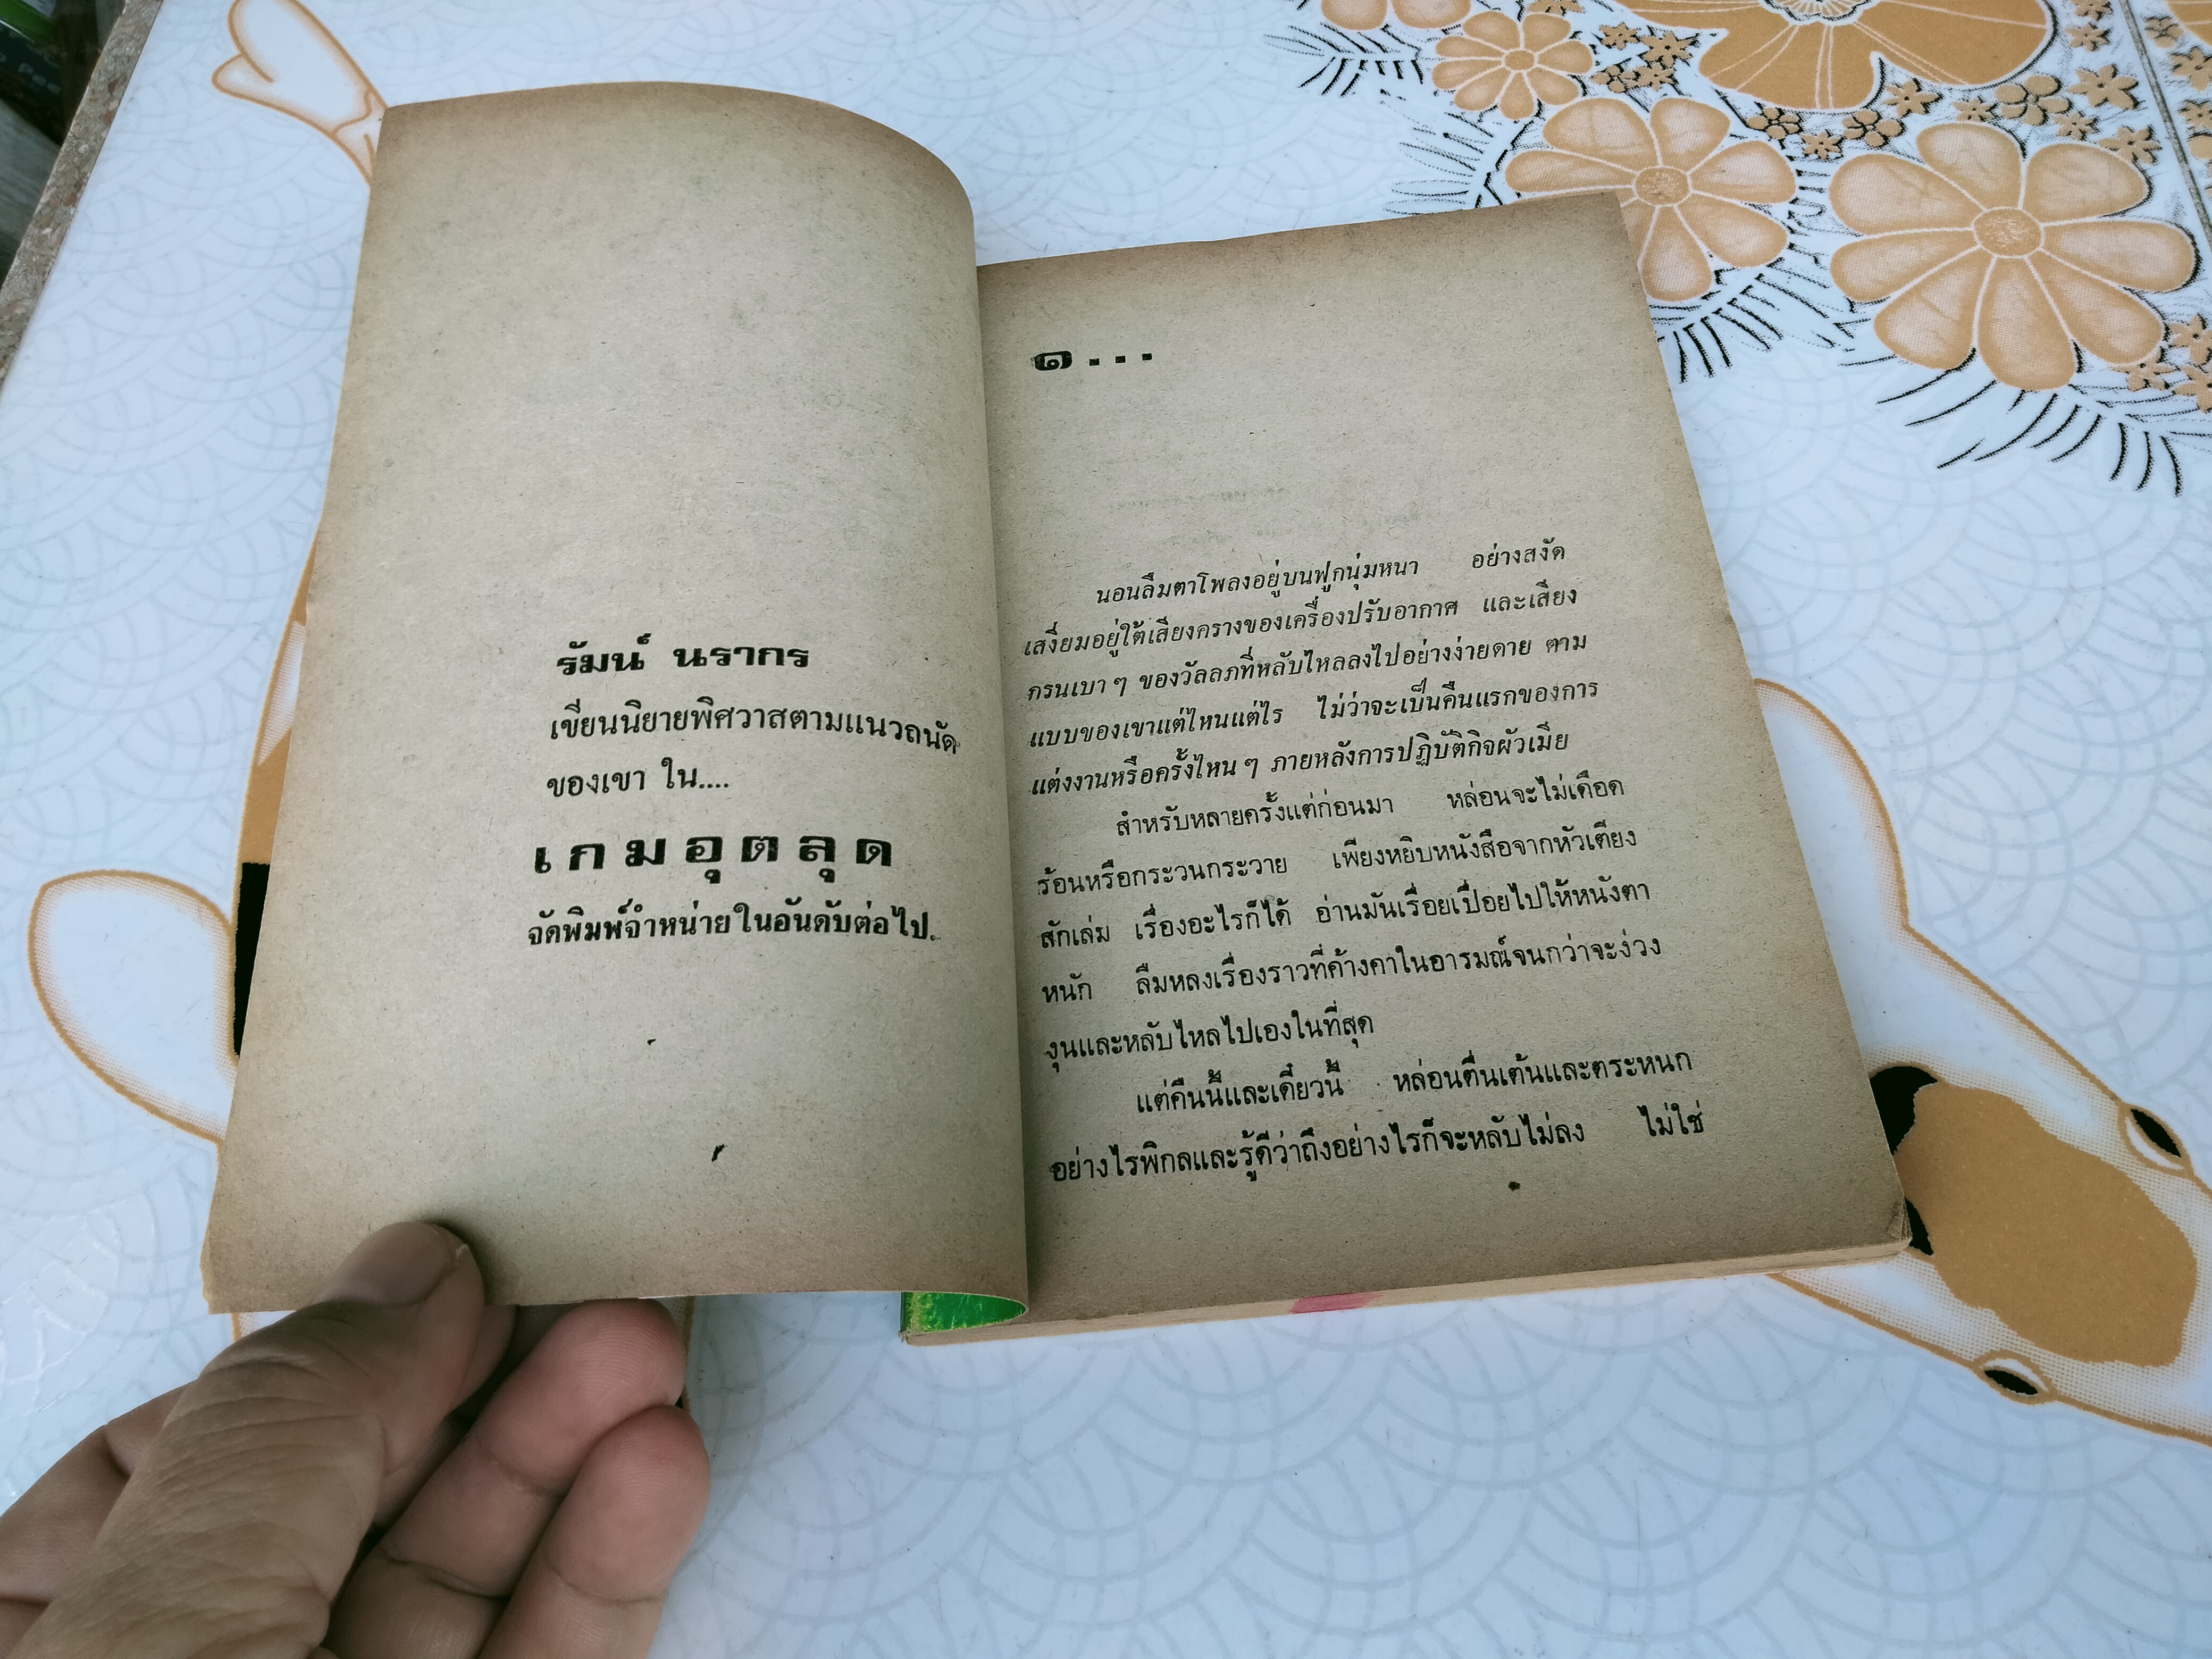 รัมน์ นรากร
เขียนนิยายพิศวาสตามแนวถนัด
ของเขา ใน....
เกมอุตลุด
จัดพิมพ์จำหน่ายในอันดับต่อไป.
๑...
นอนลืมตาโพลงอยู่บนฟูกนุ่มหนา อย่างสงัด
เสงี่ยมอยู่ใต้เสียงครางของเครื่องปรับอากาศ และเสียง
กรนเบา ๆ ของวัลลภที่หลับไหลลงไปอย่างง่ายดาย ตาม
แบบของเขาแต่ไหนแต่ไร ไม่ว่าจะเป็นคืนแรกของการ
แต่งงานหรือครั้งไหน ๆ ภายหลังการปฏิบัติกิจผัวเมีย
สำหรับหลายครั้งแต่ก่อนมา หล่อนจะไม่เดือด
ร้อนหรือกระวนกระวาย เพียงหยิบหนังสือจากหัวเตียง
สักเล่ม เรื่องอะไรก็ได้ อ่านมันเรื่อยเปื่อยไปให้หนังตา
หนัก ลืมหลงเรื่องราวที่ค้างคาในอารมณ์จนกว่าจะง่วง
งุนและหลับไหลไปเองในที่สุด
แต่คืนนี้และเดี๋ยวนี้ หล่อนตื่นเต้นและตระหนก
อย่างไรพิกลและรู้ดีว่าถึงอย่างไรก็จะหลับไม่ลง ไม่ใช่